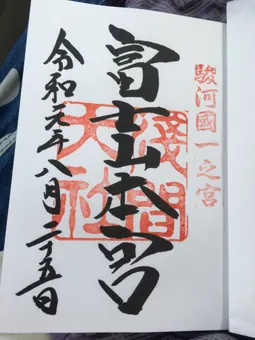 駿河國一之宮
富士山本宮
淺間
大社
令和元年八月二十五日